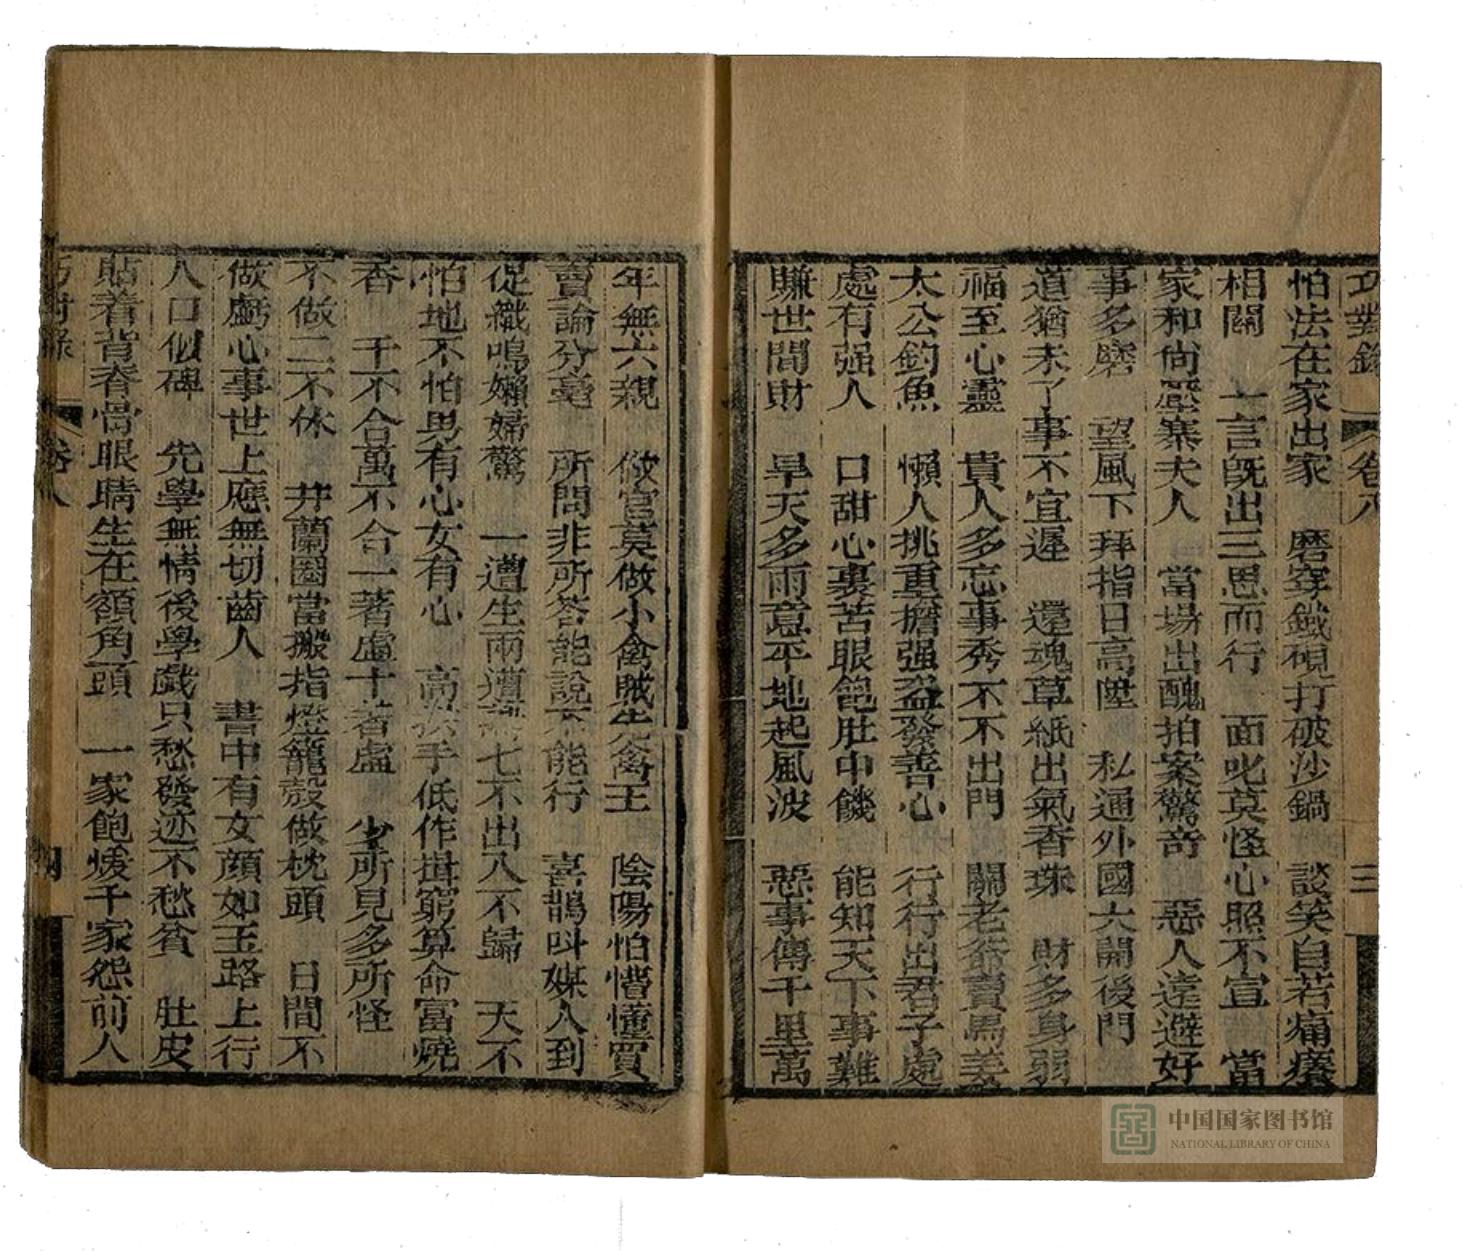 巧對錄 卷八 三
怕法在家出家 磨穿鐵硯打破沙鍋 談笑自若痛癢
相關 一言既出三思而行 面叱莫怪心照不宣 當
家和尚壓寨夫人 當場出醜拍案驚奇 惡人遠避好
事多磨 望風下拜指日高陞 私通外國大開後門
道猶未了事不宜遲 還魂草紙出氣香珠 財多身弱
福至心靈 貴人多忘事秀不不出門 關老爺賣馬姜
太公釣魚 懶人挑重擔强盜發善心 行行出君子處
處有强人 口甜心裏苦眼飽肚中饑 能知天下事難
賺世間財 旱天多雨意平地起風波 惡事傳千里萬
年無六親 做官莫做小禽賊先禽王 陰陽怕懵懂買
賣論分毫 所問非所答能說不能行 喜鵲叫媒人到
促織鳴嬾婦驚 一遭生兩遭 七不出八不歸 天不
怕地不怕男有心女有心 高 手低作揖窮算命富燒
香 千不合萬不合一著虛十著虛 少所見多所怪
不做二不休 井蘭圈當搬指燈籠殼做枕頭 日間不
做虧心事世上應無切齒人 書中有女顔如玉路上行
人口似碑 先學無情後學戲只愁發迹不愁貧 肚皮
貼着背脊骨眼睛生在額角頭 一家飽煖千家怨前人
巧對錄 卷八 四
中国国家图书馆
NATIONAL LIBRARY OF CHINA